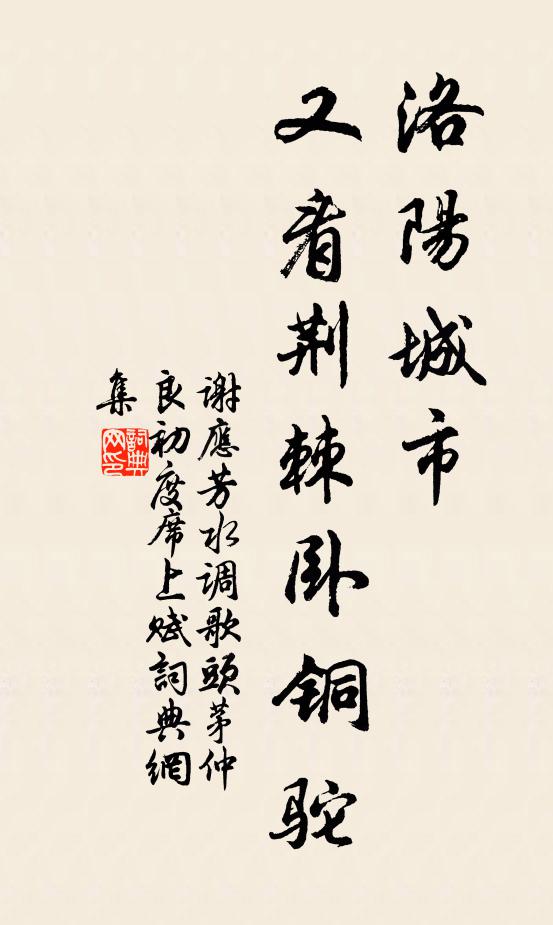 洛陽城市
又看荆棘卧铜駝
謝應芳水调歌頭茅仲
良初度席上赋詞典網
集
詞典
网印